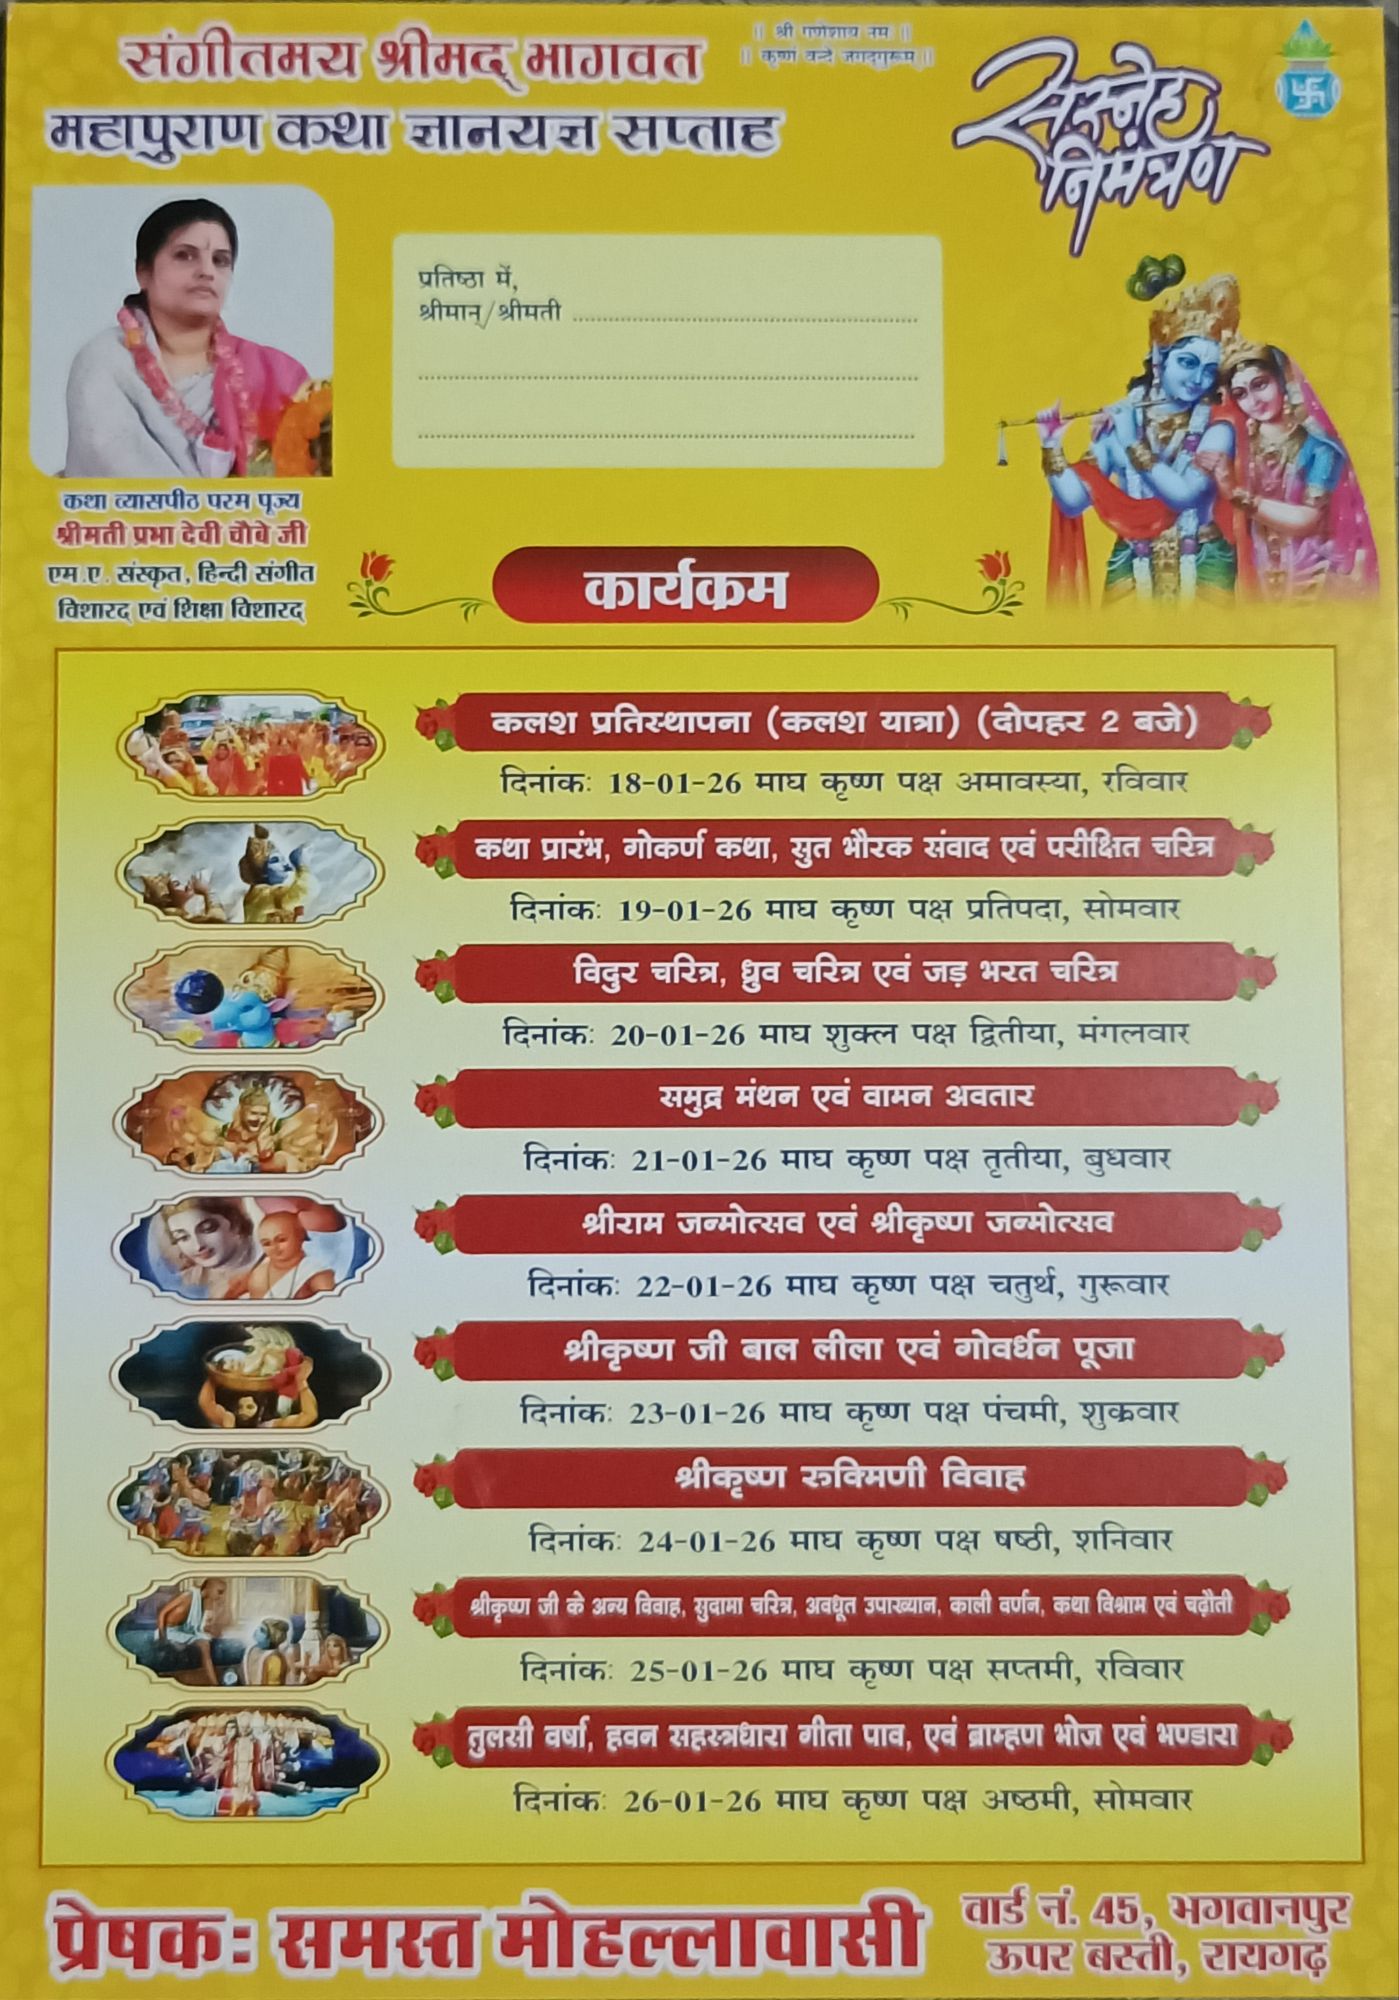 || श्री गणेशाय नमः ||
|| कृष्णं वन्दे जगद्गुरूम् ||
संगीतमय श्रीमद् भागवत
महापुराण कथा ज्ञानयज्ञ सप्ताह
सस्नेह
निमंत्रण
प्रतिष्ठा में,
श्रीमान्/श्रीमती
कथा व्यासपीठ परम पूज्य
श्रीमती प्रभा देवी चौबे जी
एम.ए. संस्कृत, हिन्दी संगीत
विशारद् एवं शिक्षा विशारद्
कार्यक्रम
कलश प्रतिस्थापना (कलश यात्रा) (दोपहर 2 बजे)
दिनांक: 18-01-26 माघ कृष्ण पक्ष अमावस्या, रविवार
कथा प्रारंभ, गोकर्ण कथा, सुत भौरक संवाद एवं परीक्षित चरित्र
दिनांक: 19-01-26 माघ कृष्ण पक्ष प्रतिपदा, सोमवार
विदुर चरित्र, ध्रुव चरित्र एवं जड़ भरत चरित्र
दिनांक: 20-01-26 माघ शुक्ल पक्ष द्वितीया, मंगलवार
समुद्र मंथन एवं वामन अवतार
दिनांक: 21-01-26 माघ कृष्ण पक्ष तृतीया, बुधवार
श्रीराम जन्मोत्सव एवं श्रीकृष्ण जन्मोत्सव
दिनांक: 22-01-26 माघ कृष्ण पक्ष चतुर्थ, गुरूवार
श्रीकृष्ण जी बाल लीला एवं गोवर्धन पूजा
दिनांक: 23-01-26 माघ कृष्ण पक्ष पंचमी, शुक्रवार
श्रीकृष्ण रुक्मिणी विवाह
दिनांक: 24-01-26 माघ कृष्ण पक्ष षष्ठी, शनिवार
श्रीकृष्ण जी के अन्य विवाह, सुदामा चरित्र, अवधूत उपाख्यान, काली वर्णन, कथा विश्राम एवं चढ़ौती
दिनांक: 25-01-26 माघ कृष्ण पक्ष सप्तमी, रविवार
तुलसी वर्षा, हवन सहस्त्रधारा गीता पाव, एवं ब्राम्हण भोज एवं भण्डारा
दिनांक: 26-01-26 माघ कृष्ण पक्ष अष्ठमी, सोमवार
प्रेषक: समस्त मोहल्लावासी
वार्ड नं. 45, भगवानपुर
ऊपर बस्ती, रायगढ़